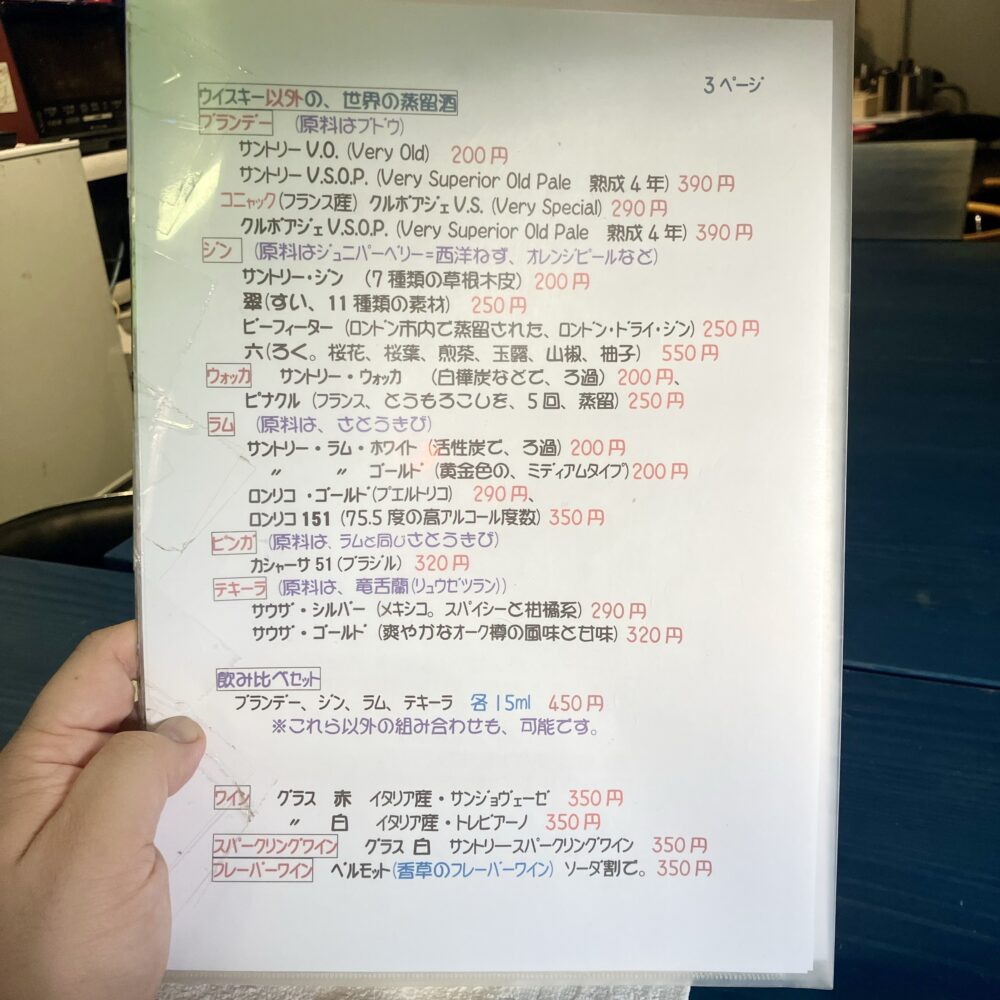 3ページ
ウイスキー以外の、世界の蒸留酒
ブランデー (原料はブドウ)
サントリーV.O. (Very Old) 200円
サントリーV.S.O.P. (Very Superior Old Pale 熟成4年) 390円
コニャック(フランス産) クルボアジェV.S. (Very Special) 290円
クルボアジェV.S.O.P. (Very Superior Old Pale 熟成4年) 390円
ジン (原料はジュニパーベリー=西洋ねず、オレンジピールなど)
サントリー・ジン (7種類の草根木皮) 200円
翠(すい、11種類の素材) 250円
ビーフィーター (ロンドン市内で蒸留された、ロンドン・ドライ・ジン) 250円
六(ろく。桜花、桜葉、煎茶、玉露、山椒、柚子) 550円
ウォッカ サントリー・ウォッカ (白樺炭などで、ろ過) 200円、
ピナクル (フランス、とうもろこしを、5回、蒸留) 250円
ラム (原料は、さとうきび)
サントリー・ラム・ホワイト (活性炭で、ろ過) 200円
〃 〃 ゴールド (黄金色の、ミディアムタイプ) 200円
ロンリコ・ゴールド(プエルトリコ) 290円、
ロンリコ151 (75.5度の高アルコール度数) 350円
ピンガ (原料は、ラムと同じさとうきび)
カシャーサ51 (ブラジル) 320円
テキーラ (原料は、竜舌蘭(リュウゼツラン))
サウザ・シルバー (メキシコ。スパイシーと柑橘系) 290円
サウザ・ゴールド (爽やかなオーク樽の風味と甘味) 320円
飲み比べセット
ブランデー、ジン、ラム、テキーラ 各15ml 450円
※これら以外の組み合わせも、可能です。
ワイン グラス 赤 イタリア産・サンジョヴェーゼ 350円
〃 白 イタリア産・トレビアーノ 350円
スパークリングワイン グラス 白 サントリースパークリングワイン 350円
フレーバーワイン ベルモット(香草のフレーバーワイン) ソーダ割で。350円